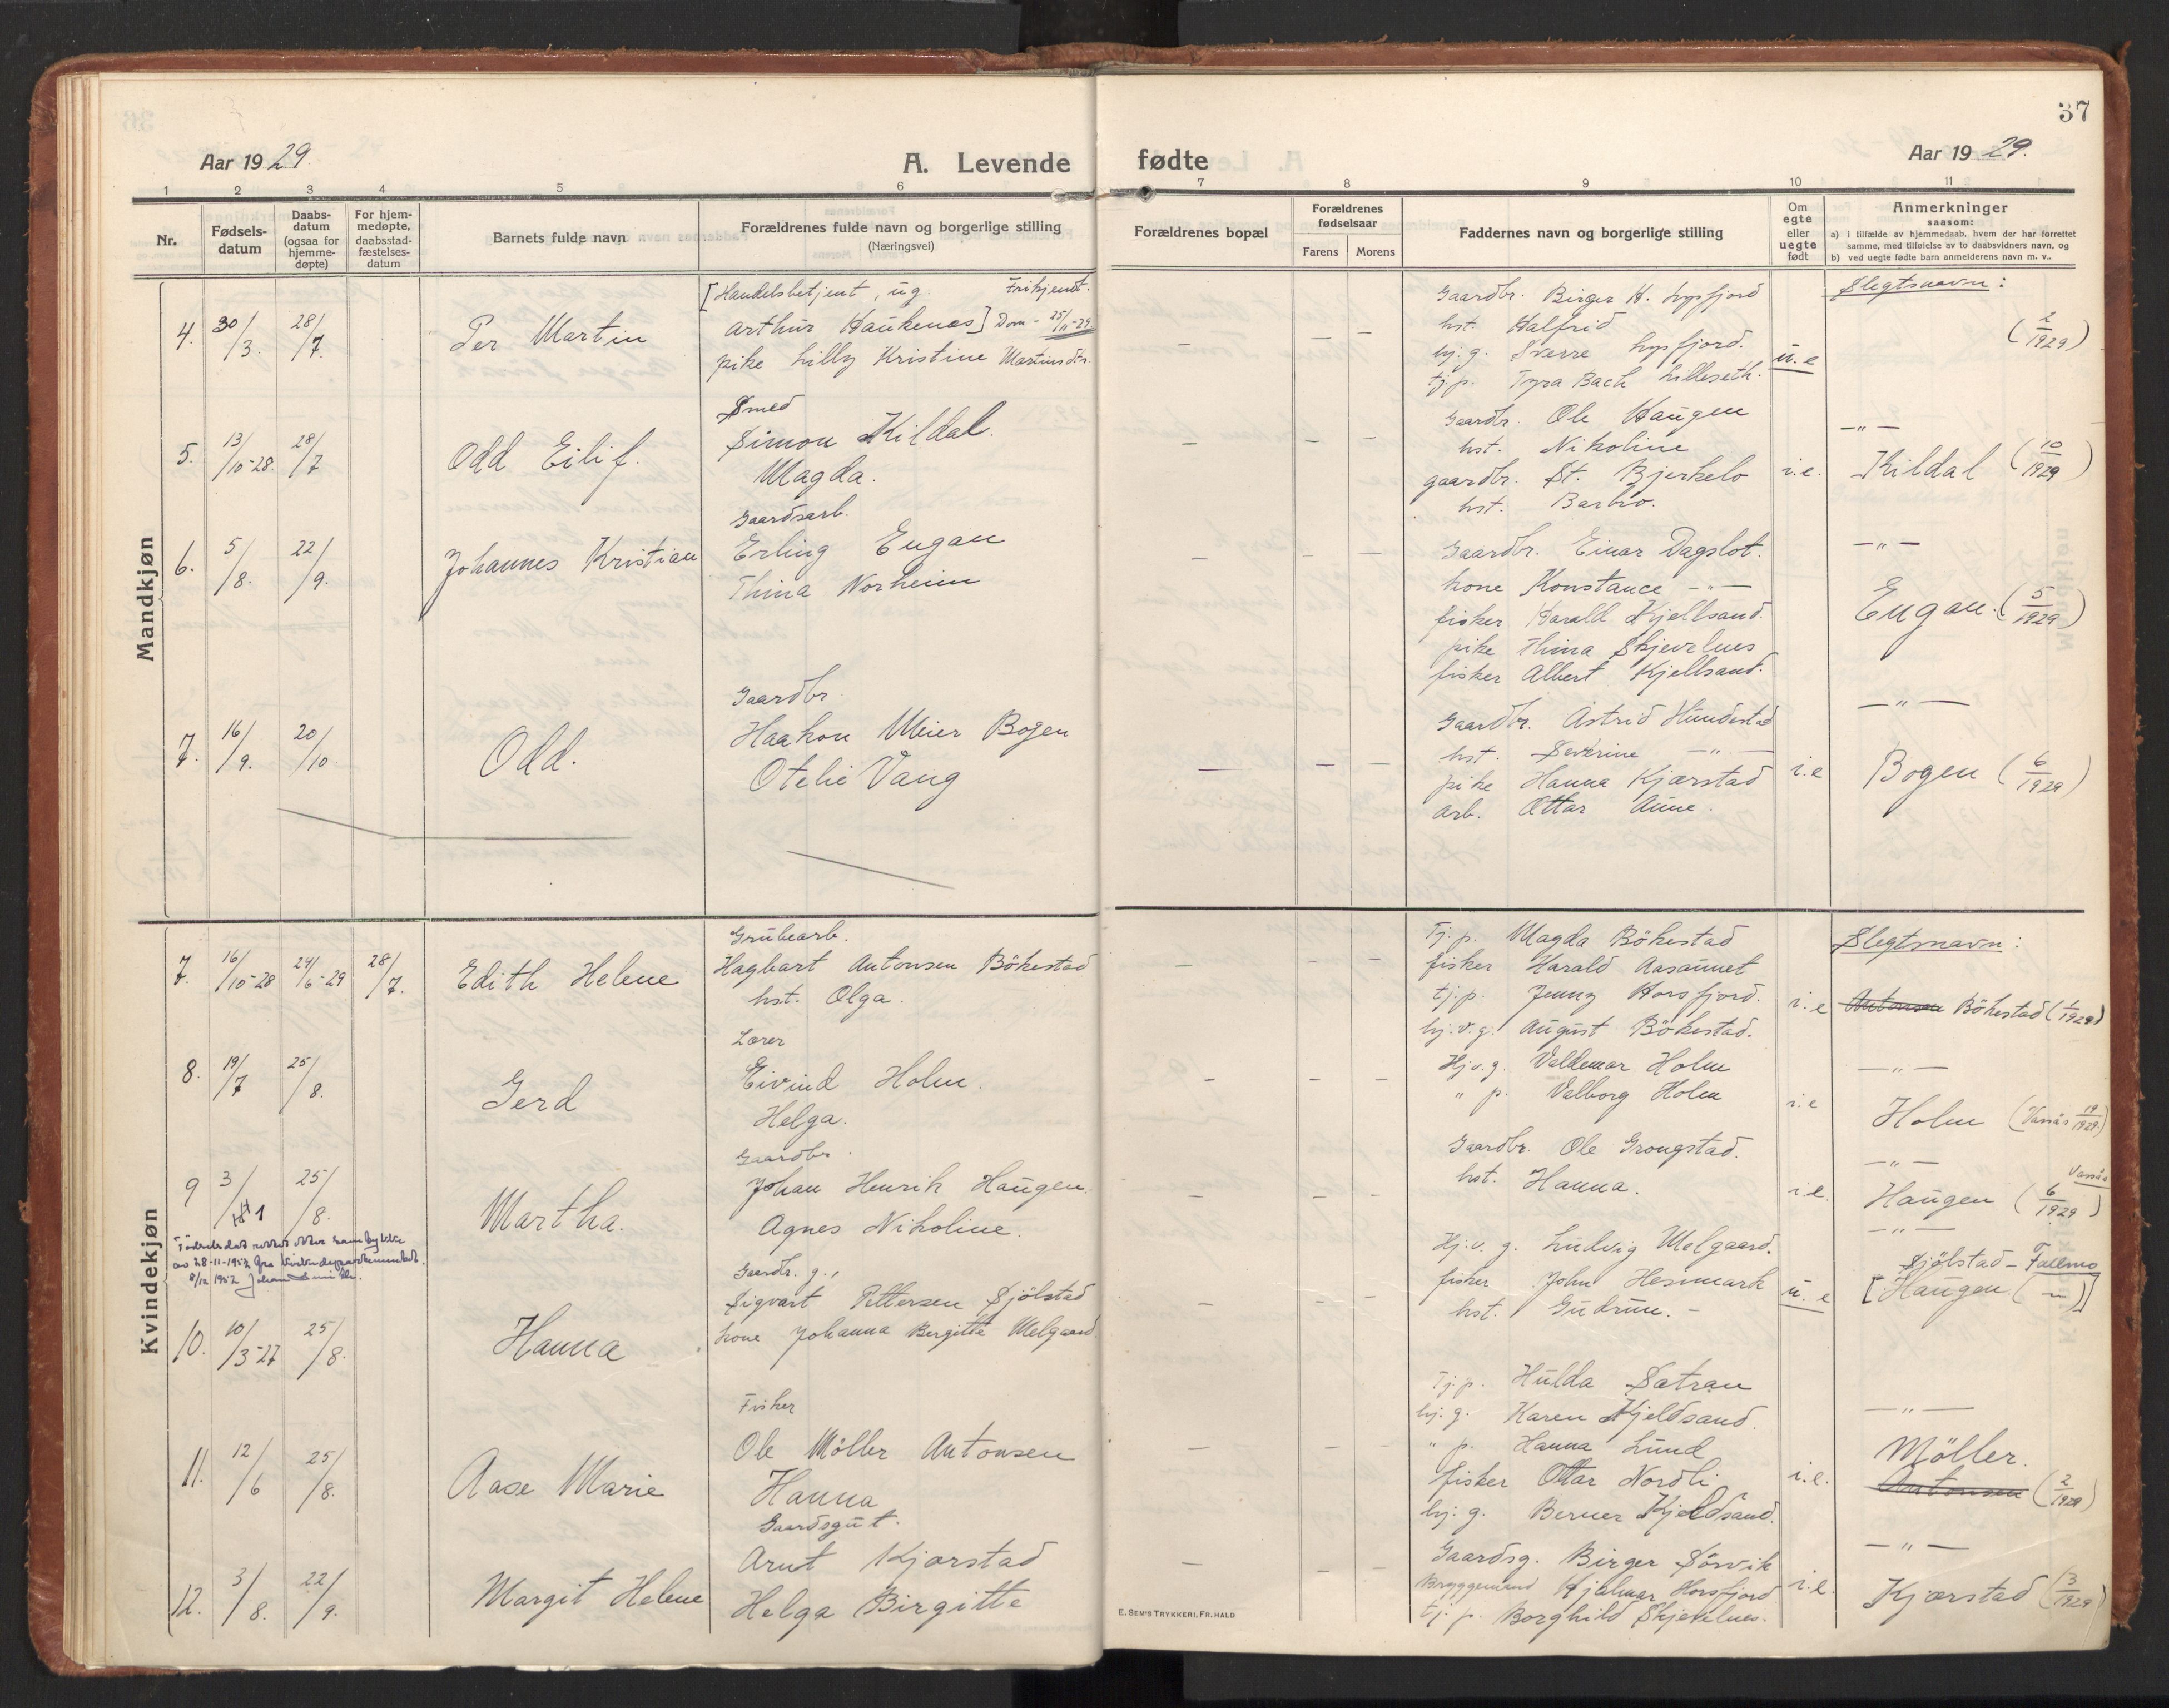 37
Aar 1929.
A. Levende fødte
Aar 1929.
1 2 3 4 5 6 7 8 9 10 11
Nr.
Fødsels-
datum
Daabs-
datum
(ogsaa for
hjemme-
døpte)
For hjem-
medøpte,
daabsstad-
fæstelses-
datum
Barnets fulde navn
Forældrenes fulde navn og borgerlige stilling
(Næringsvei)
Forældrenes bopæl
Forældrenes
fødselsaar
Farens Morens
Faddernes navn og borgerlige stilling
Om
egte
eller
uegte
født
Anmerkninger
saasom:
a) i tilfælde av hjemmedaab, hvem der har forrettet
samme, med tilføielse av to daabsvidners navn, og
b) ved uegte fødte barn anmelderens navn m. v..
Mandkjøn
4. 30/3. 28/7. Per Martin
[Handelsbetjent, ug. Frikjent.
Arthur Haukenæs] Dom - 25/11-29
pike Lilly Kristine Martinsdtr.
— — —
Gaardbr. Birger H. Lysfjord
hst. Halfrid
hj. g. Sverre Lysfjord.
tj. p. Tyra Bach Lilleseth.
u. e
Slegtsnavn:
(2/1929)
5. 13/10-28. 28/7 Odd Eilif.
Smed
Simon Kildal.
Magda.
— — —
Gaardbr. Ole Haugen
hst. Nikoline
gaardbr. St. Bjerkelo
hst. Barbro.
i.e.
—"—
Kildal (10/1929)
6. 5/8. 22/9. Johannes Kristian
Gaardsarb.
Erling Engan
Thina Norheim
— — —
Gaardbr. Einar Dagslot.
kone Konstance —"—
fisker Harald Kjellsand.
pike Thina Skjevelnes
fisker Albert Kjellsand.
—"—
Engan. (5/1929)
7. 16/9. 20/10. Odd.
Gaardbr
Haakon Meier Bogen
Otelie Vang
— — —
Gaardbr. Astrid Hundestad
hst. Severine —"—
pike Hanna Kjærstad
arb. Ottar Aune.
i.e
—"—
Bogen (6/1929)
Kvindekjøn
7. 16/10-28 24/6-29 28/7. Edith Helene
Grubearb.
Hagbart Antonsen Bökestad
hst. Olga.
— — —
Tj. p. Magda Bökestad
fisker Harald Aasaunet
tj. p. Jenny Horsfjord.
hj. v. g. August Bökestad.
i. e
Slegtsnavn:
Antonsen Bökestad (1/1929)
8. 19/7 25/8. Gerd
Lærer
Eivind Holm.
Helga.
— — —
Hj. v. g. Valdemar Holm
" p. Valborg Holm
i.e
—"—
Holm (Vassås 19/1929.)
9 3/1 25/8. Martha.
Gaardbr.
Johan Henrik Haugen.
Agnes Nikoline.
— — —
Gaardbr. Ole Grongstad.
hst. Hanna.
i.e.
—"—
Vassås
Haugen (6/1929)
Fødselsdat rettet etter samtykke
av 28-11-1952 fra Kirkedepartementet.
8/12 1952
10. 10/3-27 25/8. Hanna
Gaardbr. g.,
Sigvart Pettersen Sjölstad
kone Johanna Bergitte Melgaard.
— — —
Hj. v. g. Ludvig Melgaard.
fisker John Hesmark
hst. Gudrun. -
u. e
—"—
Sjölstad - Fallmo
[Haugen. (—"—)]
11. 12/6 25/8. Aase Marie
Fisker
Ole Möller Antonsen
Hanna
— — —
Tj. p. Hulda Satran
hj. g. Karen Kjeldsand.
" p. Hanna Lund
fisker Ottar Nordli
hj. g. Berner Kjeldsand.
i.e.
—"—
Möller.
Antonsen (2/1929)
12. 3/8. 22/9. Margit Helene
Gaardsgut.
Arnt Kjærstad
Helga Birgitte
— — —
Gaardsg. Birger Sörvik
Bryggemand Hjalmar Horsfjord
tj. p. Borghild Skjevelnes.
i.e.
—"—
Kjærstad (3/1929)
E. SEM'S TRYKKERI, FR.HALD